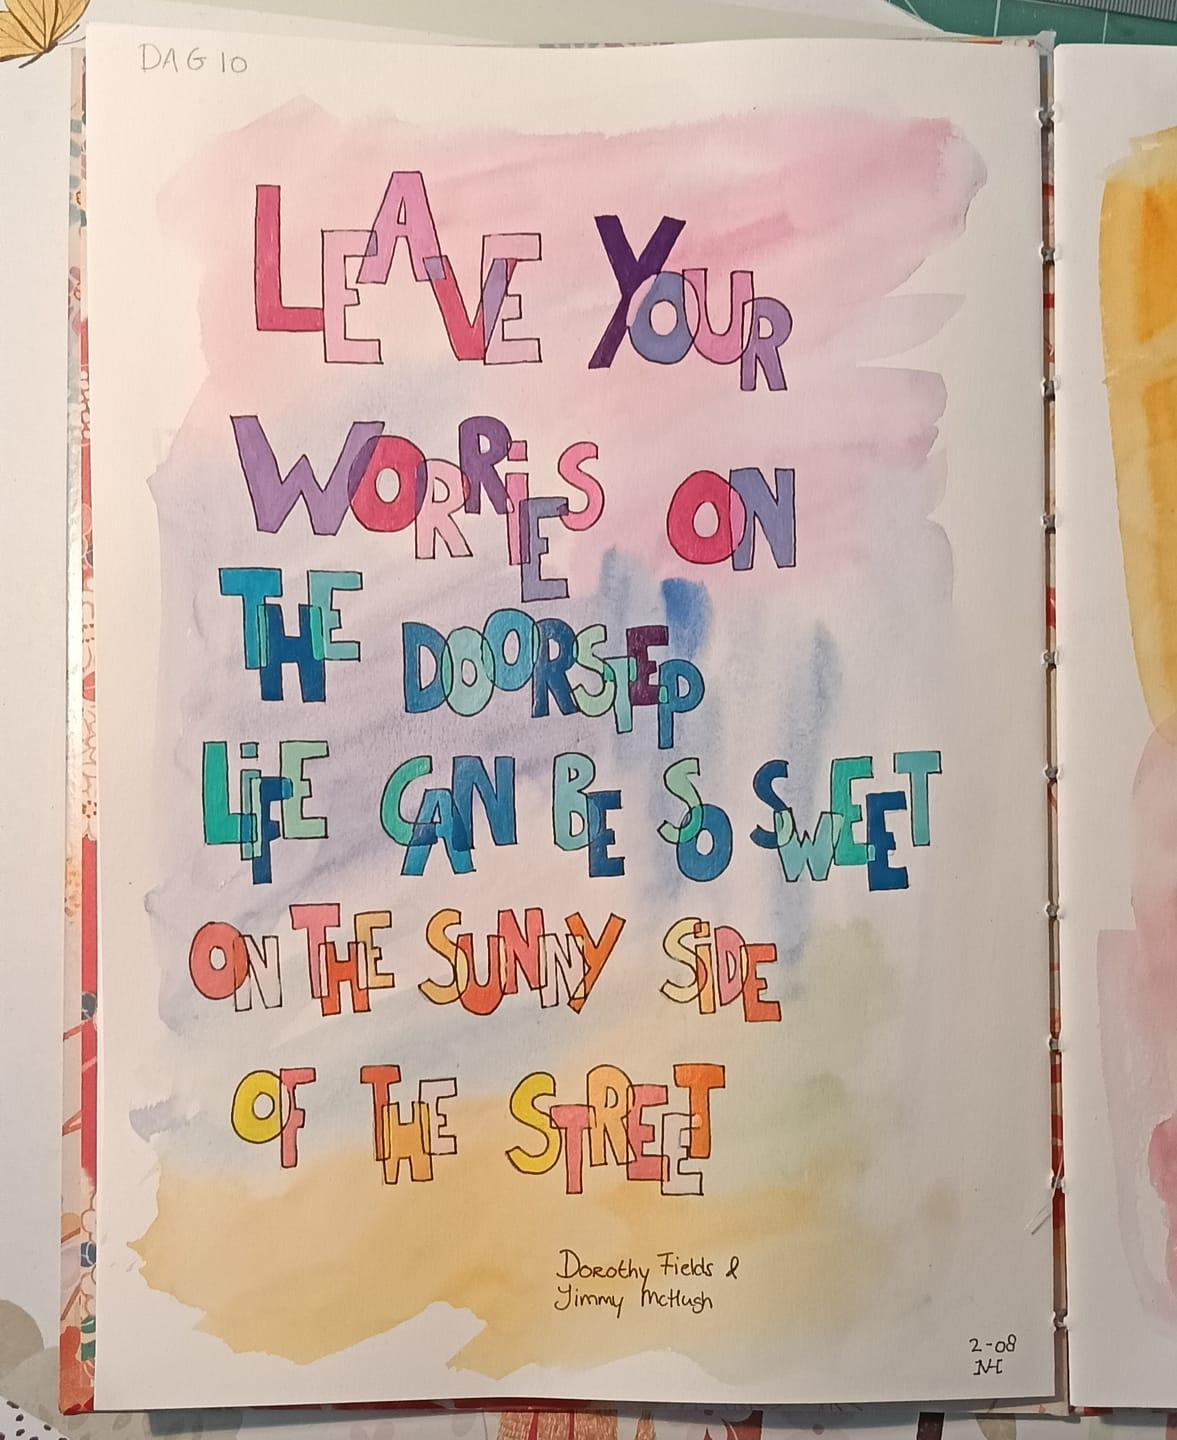 DAG 10
LEAVE YOUR
WORRiES ON
THE DOORSTEP
LiFE CAN BE SO SWEET
ON THE SUNNY SiDE
OF THE STREET
Dorothy Fields &
Jimmy McHugh
2-08